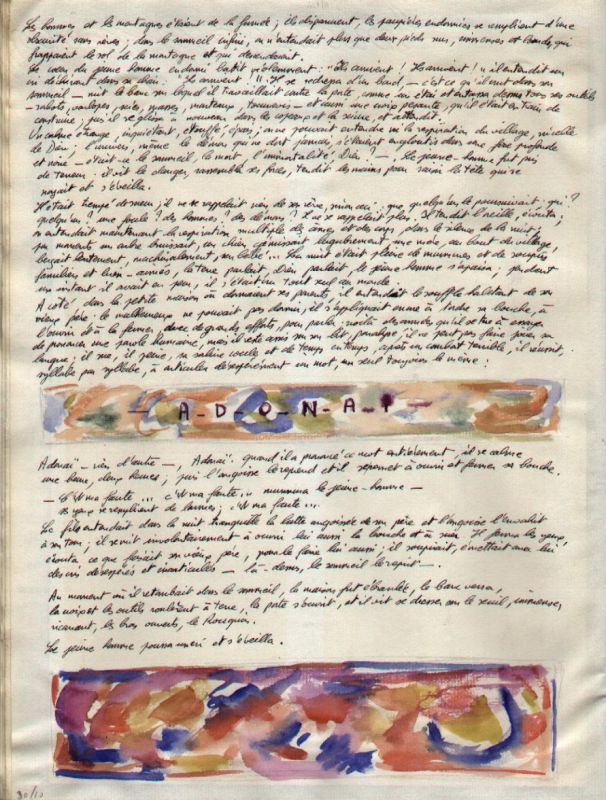 Les hommes et les montagnes étaient de la fumée ; ils disparurent, les paupières endormies se emplirent d'une
obscurité sans rêves ; dans le sommeil infini, on n'entendait plus que deux pieds nus, immenses et lourds, qui
frappaient le sol de la montagne et qui descendaient.
Le cœur du jeune homme endormi battit violemment : "Ils arrivent ! Ils arrivent !" il entendit un
cri déchirant dans sa chair. Ils arrivent ! Il se redressa d'un bond, - c'est ce qu'il crut dans son
sommeil - mit le banc sur lequel il travaillait contre la porte, entassa dessus tous ses outils
- rabots, varlopes, scies, marteaux, tournevis - et aussi une croix pesante, qu'il était en train de
construire ; puis il se glissa à nouveau dans les copeaux et la sciure, et attendit.
Un calme étrange, inquiétant, étouffé, épais ; on ne pouvait entendre ni la respiration du village, ni celle
de Dieu ; l'univers, même le démon qui ne dort jamais, s'étaient engloutis dans une fosse profonde
et noire - était-ce le sommeil, la mort, l'immortalité, Dieu ? -. Le jeune homme fut pris
de terreur : il vit le danger, rassembla ses forces, tendit les mains pour saisir la tête qui se
noyait et s'éveilla.
Il était trempé de sueur ; il ne se rappelait rien de son rêve, que, quelqu'un le poursuivait : qui ?
quelqu'un ? une foule ? des hommes ? des démons ? Il ne se rappelait plus. Il tendit l'oreille, écouta ;
on entendait maintenant la respiration multiple des âmes et des corps, dans le silence de la nuit ;
par moments un arbre bruissait, un chien gémissait lugubrement, une mère, au bout du village,
berçait lentement, machinalement, son bébé... La nuit était pleine de murmures et de soupirs
familiers et bien-aimés, la terre parlait, Dieu parlait, le jeune homme s'apaisa ; pendant
un instant il avait eu peur, il s'était cru tout seul au monde.
A côté dans la petite maison où dormaient ses parents, il entendait le souffle haletant de son
vieux père ; le malheureux ne pouvait pas dormir, il s'appliquait encore à tordre sa bouche, à
l'ouvrir et à la fermer avec de grands efforts, pour parler ; voilà des années qu'il se tue à essayer
de prononcer une parole humaine, mais il reste assis sur son lit, paralysé, il ne peut pas faire plier sa
langue ; il sue, il peine, sa salive coule et de temps en temps, après un combat terrible, il réussit
syllabe par syllabe, à articuler désespérément un mot, un seul toujours le même :
A - D - O - N - A - Y -
Adonaï - rien d'autre -, Adonaï. Quand il a prononcé ce mot entièrement, il se calme
une heure, deux heures ; puis l'angoisse le reprend et il se remet à ouvrir et fermer sa bouche.
- C'est ma faute ... c'est ma faute ... murmura le jeune-homme -
ses yeux se remplirent de larmes ; c'est ma faute ...
Le fils entendait dans la nuit tranquille la lutte angoissée de son père et l'angoisse l'envahit
à son tour ; il se mit involontairement à ouvrir lui aussi la bouche et à suer. Il ferma les yeux,
écouta ce que faisait son vieux père, pour le faire lui aussi ; il soupirait, émettait avec lui
des cris désespérés et inarticulés - là-dessus, le sommeil le reprit -.
Au moment où il retombait dans le sommeil, la maison fut ébranlée, le banc versa,
la croix et les outils roulèrent à terre, la porte s'ouvrit, et il vit se dresser sur le seuil, immense,
ricanant, les bras ouverts, le Rouquin.
Le jeune homme poussa un cri et s'éveilla.